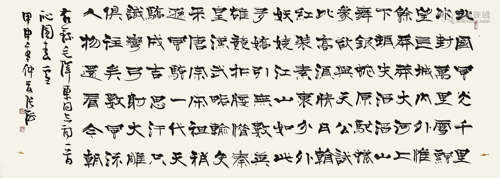 北國風光千里
冰封萬里雪飄
望長城內外惟
餘莽莽大河上
下頓失滔滔山
舞銀蛇原馳蠟
象欲與天公試
比高須晴日看
紅裝素裹分外
妖嬈江山如此
多嬌引無數英
雄競折腰惜秦
皇漢武略輸文
采唐宗宋祖稍
遜風騷一代天
驕成吉思汗只
識彎弓射大雕
俱往矣數風流
人物還看今朝
右錄毛澤東同志詞一首
沁園春雪
甲申年仲夏